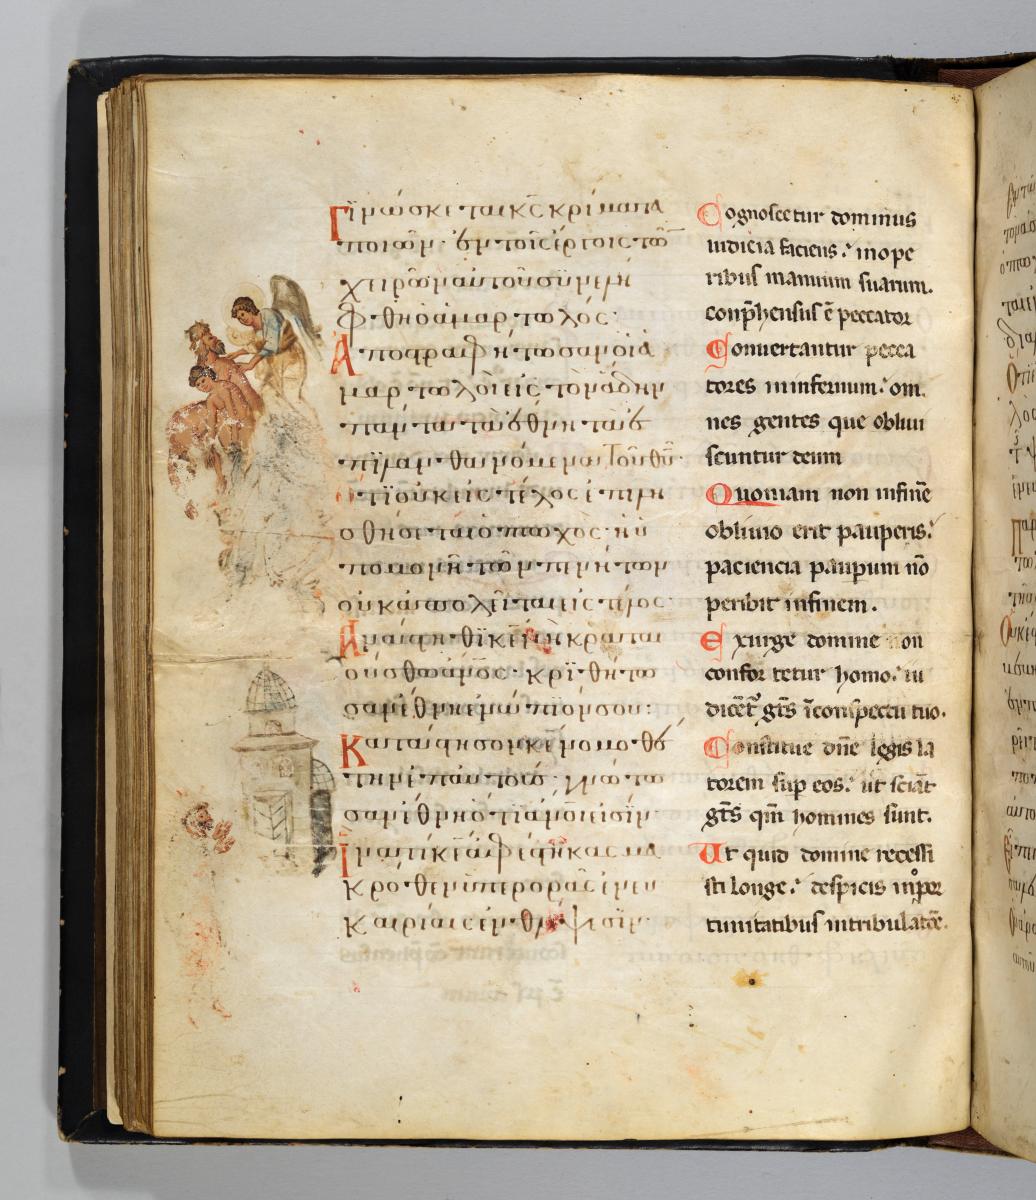 Γϊνώσκεται κ̅ς κρίματα
ποιῶν· ἐν τοῖς ἔργοις τῶ
χειρῶν αυτοῦ συνελή
φθη ὁ ἁμαρτωλός·
Ἀποστραφήτωσαν οἱ ἁ
μαρτωλοὶ εἰς τὸν ἅδην
πάντα τὰ ἔθνη τὰ ἐ
πϊλανθανόμενα τοῦ θ̅υ·
Ὅτι οὐκ εἰς τέλος ἐπιλη
σθήσεται ὁ πτωχός· ἡ ὑ
πομονὴ τῶν πενήτων
οὐκ ἀπολεῖται εἰς τέλος·
Ἀνάστηθϊ κ̅ε μὴ κραται
ούσθω ἄν̅ος· κρϊθήτω
σαν ἔθνη ἐνώπιόν σου:
Κατάστησον κ̅ε νομοθέ
την ἐπ αὐτούς· γνώτω
σαν ἔθνη ὅτι ἄν̅οί εἰσϊν·
Ἱνατί κ̅ε ἀφέστηκας μα
κρόθεν ὑπερορᾶς ἐν εὐ
καιρίαις ἐν θλίψεσϊν·
Cognoscetur dominus
iudicia faciens: inope
ribus manuum suarum.
conp̅hensus e̅ peccator
Conuertantur pecca
tores ininfernum: om
nes gentes que obliui
scuntur deum
Quoniam non infine̅
obliuio erit pauperis:
paciencia paupum no̅
peribit infinem.
Exurge domine non
confortetur homo: iu
dice̅t̅ gt̅s i̅conspectu tuo.
Constitue dn̅e legis la
torem sup eos: ut scia̅t
gt̅s qm̅ homines sunt.
Ut quid domine recessi
sti longe: despicis inopor
tunitatibus intribulato̅e.